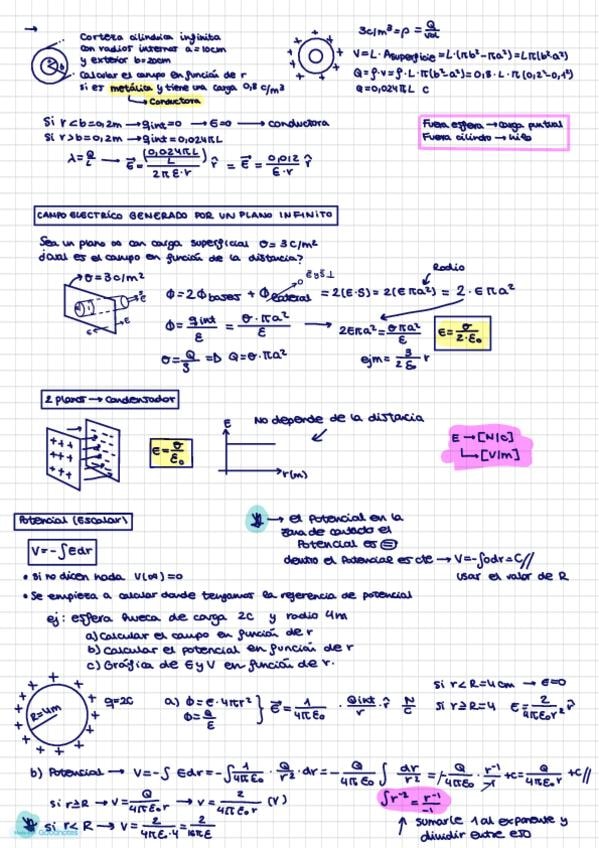 → Corteza cilíndrica infinita
con radios internos a=10cm
y exterior b=20cm
Calcular el campo en función de r
si es metálica y tiene una carga 0,8 c/m³
↳ Conductora
3c/m³=ρ = Q/vol
V=L·Asuperficie=L·(πb²-πa²)=Lπ(b²-a²)
Q=ρ·v=ρ·L·π(b²-a²)=0,8·L·π(0,2²-0,1²)
Q=0,024πL C
Si r<b=0,2m → qint=0 → E=0 → conductora
Si r>b=0,2m → qint=0,024πL
λ=Q/L → E=((0,024πL)/L)/(2πε·r) r̂ = E = 0,012/(ε·r) r̂
Fuera esfera → carga puntual
Fuera cilindro → hilo
CAMPO ELECTRICO GENERADO POR UN PLANO INFINITO
Sea un plano ∞ con carga superficial σ=3c/m²
¿Cual es el campo en función de la distancia?
σ=3c/m²
Φ=2Φbases + Φlateral = 2(E·S)=2(Eπa²)=2·Eπa²
Radio
Φ=qint/ε = σ·πa²/ε → 2Eπa²=σπa²/ε
E=σ/2·ε₀
σ=Q/S => Q=σ·πa²
ejm= 3/2ε₀ r
2 planos → Condensador
E=σ/ε₀
E
r(m)
No depende de la distancia
E → [N/C]
↳ [V/m]
Potencial (Escalar)
V=-∫Edr
→ el potencial en la
zona de contacto el
Potencial es =
dentro el Potencial es cte → V=-∫0dr=C//
usar el valor de R
• Si no dicen nada V(∞)=0
• Se empieza a calcular donde tengamos la referencia de potencial
ej: esfera hueca de carga 2C y radio 4m
a) Calcular el campo en función de r
b) Calcular el potencial en función de r
c) Gráfica de E y V en función de r.
R=4m
q=2C
a) Φ=E·4πr²
Φ=Q/ε
E=1/4πε₀ · Qint/r · r̂ N/C
si r<R=4cm → E=0
si r≥R=4 E=2/4πε₀r² r̂
b) Potencial → V=-∫ Edr=-∫1/4πε₀ · Q/r² · dr=-Q/4πε₀ ∫ dr/r² = -Q/4πε₀ · r⁻¹/-1 +c= Q/4πε₀r +c//
si r≥R → V=Q/4πε₀r → V=2/4πε₀r (V)
∫r⁻²=r⁻¹/-1
si r<R → V=2/4πε·4=2/16πε
↑ sumarle 1 al exponente y
dividir entre eso